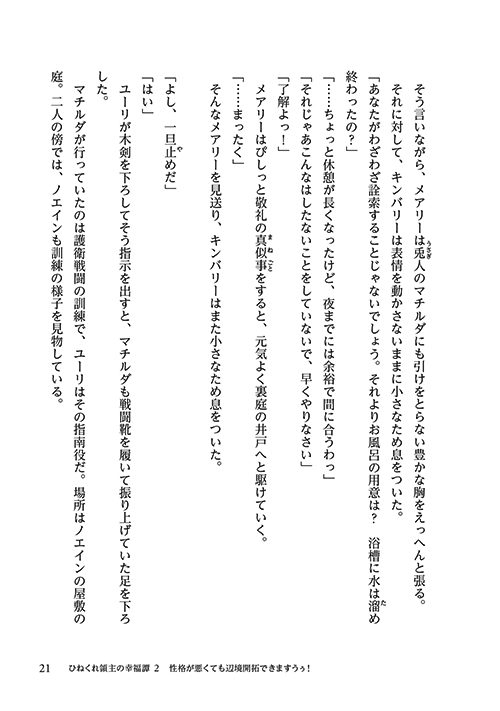 そう言いながら、メアリーは兎人のマチルダにも引けをとらない豊かな胸をえっへんと張る。
それに対して、キンバリーは表情を動かさないままに小さなため息をついた。
「あなたがわざわざ詮索することじゃないでしょう。それよりお風呂の用意は？　浴槽に水は溜め
終わったの？」
「……ちょっと休憩が長くなったけど、夜までには余裕で間に合うわっ」
「それじゃあこんなはしたないことをしていないで、早くやりなさい」
「了解よっ！」
メアリーはぴしっと敬礼の真似事をすると、元気よく裏庭の井戸へと駆けていく。
「……まったく」
そんなメアリーを見送り、キンバリーはまた小さなため息をついた。
「よし、一旦止めだ」
「はい」
ユーリが木剣を下ろしてそう指示を出すと、マチルダも戦闘靴を履いて振り上げていた足を下ろ
した。
マチルダが行っていたのは護衛戦闘の訓練で、ユーリはその指南役だ。場所はノエインの屋敷の
庭。二人の傍では、ノエインも訓練の様子を見物している。
21　ひねくれ領主の幸福譚 2　性格が悪くても辺境開拓できますうぅ！